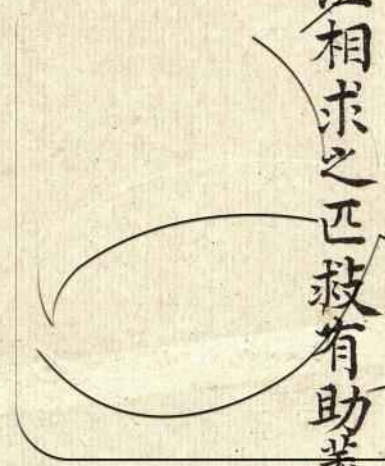 相求之匹救有助